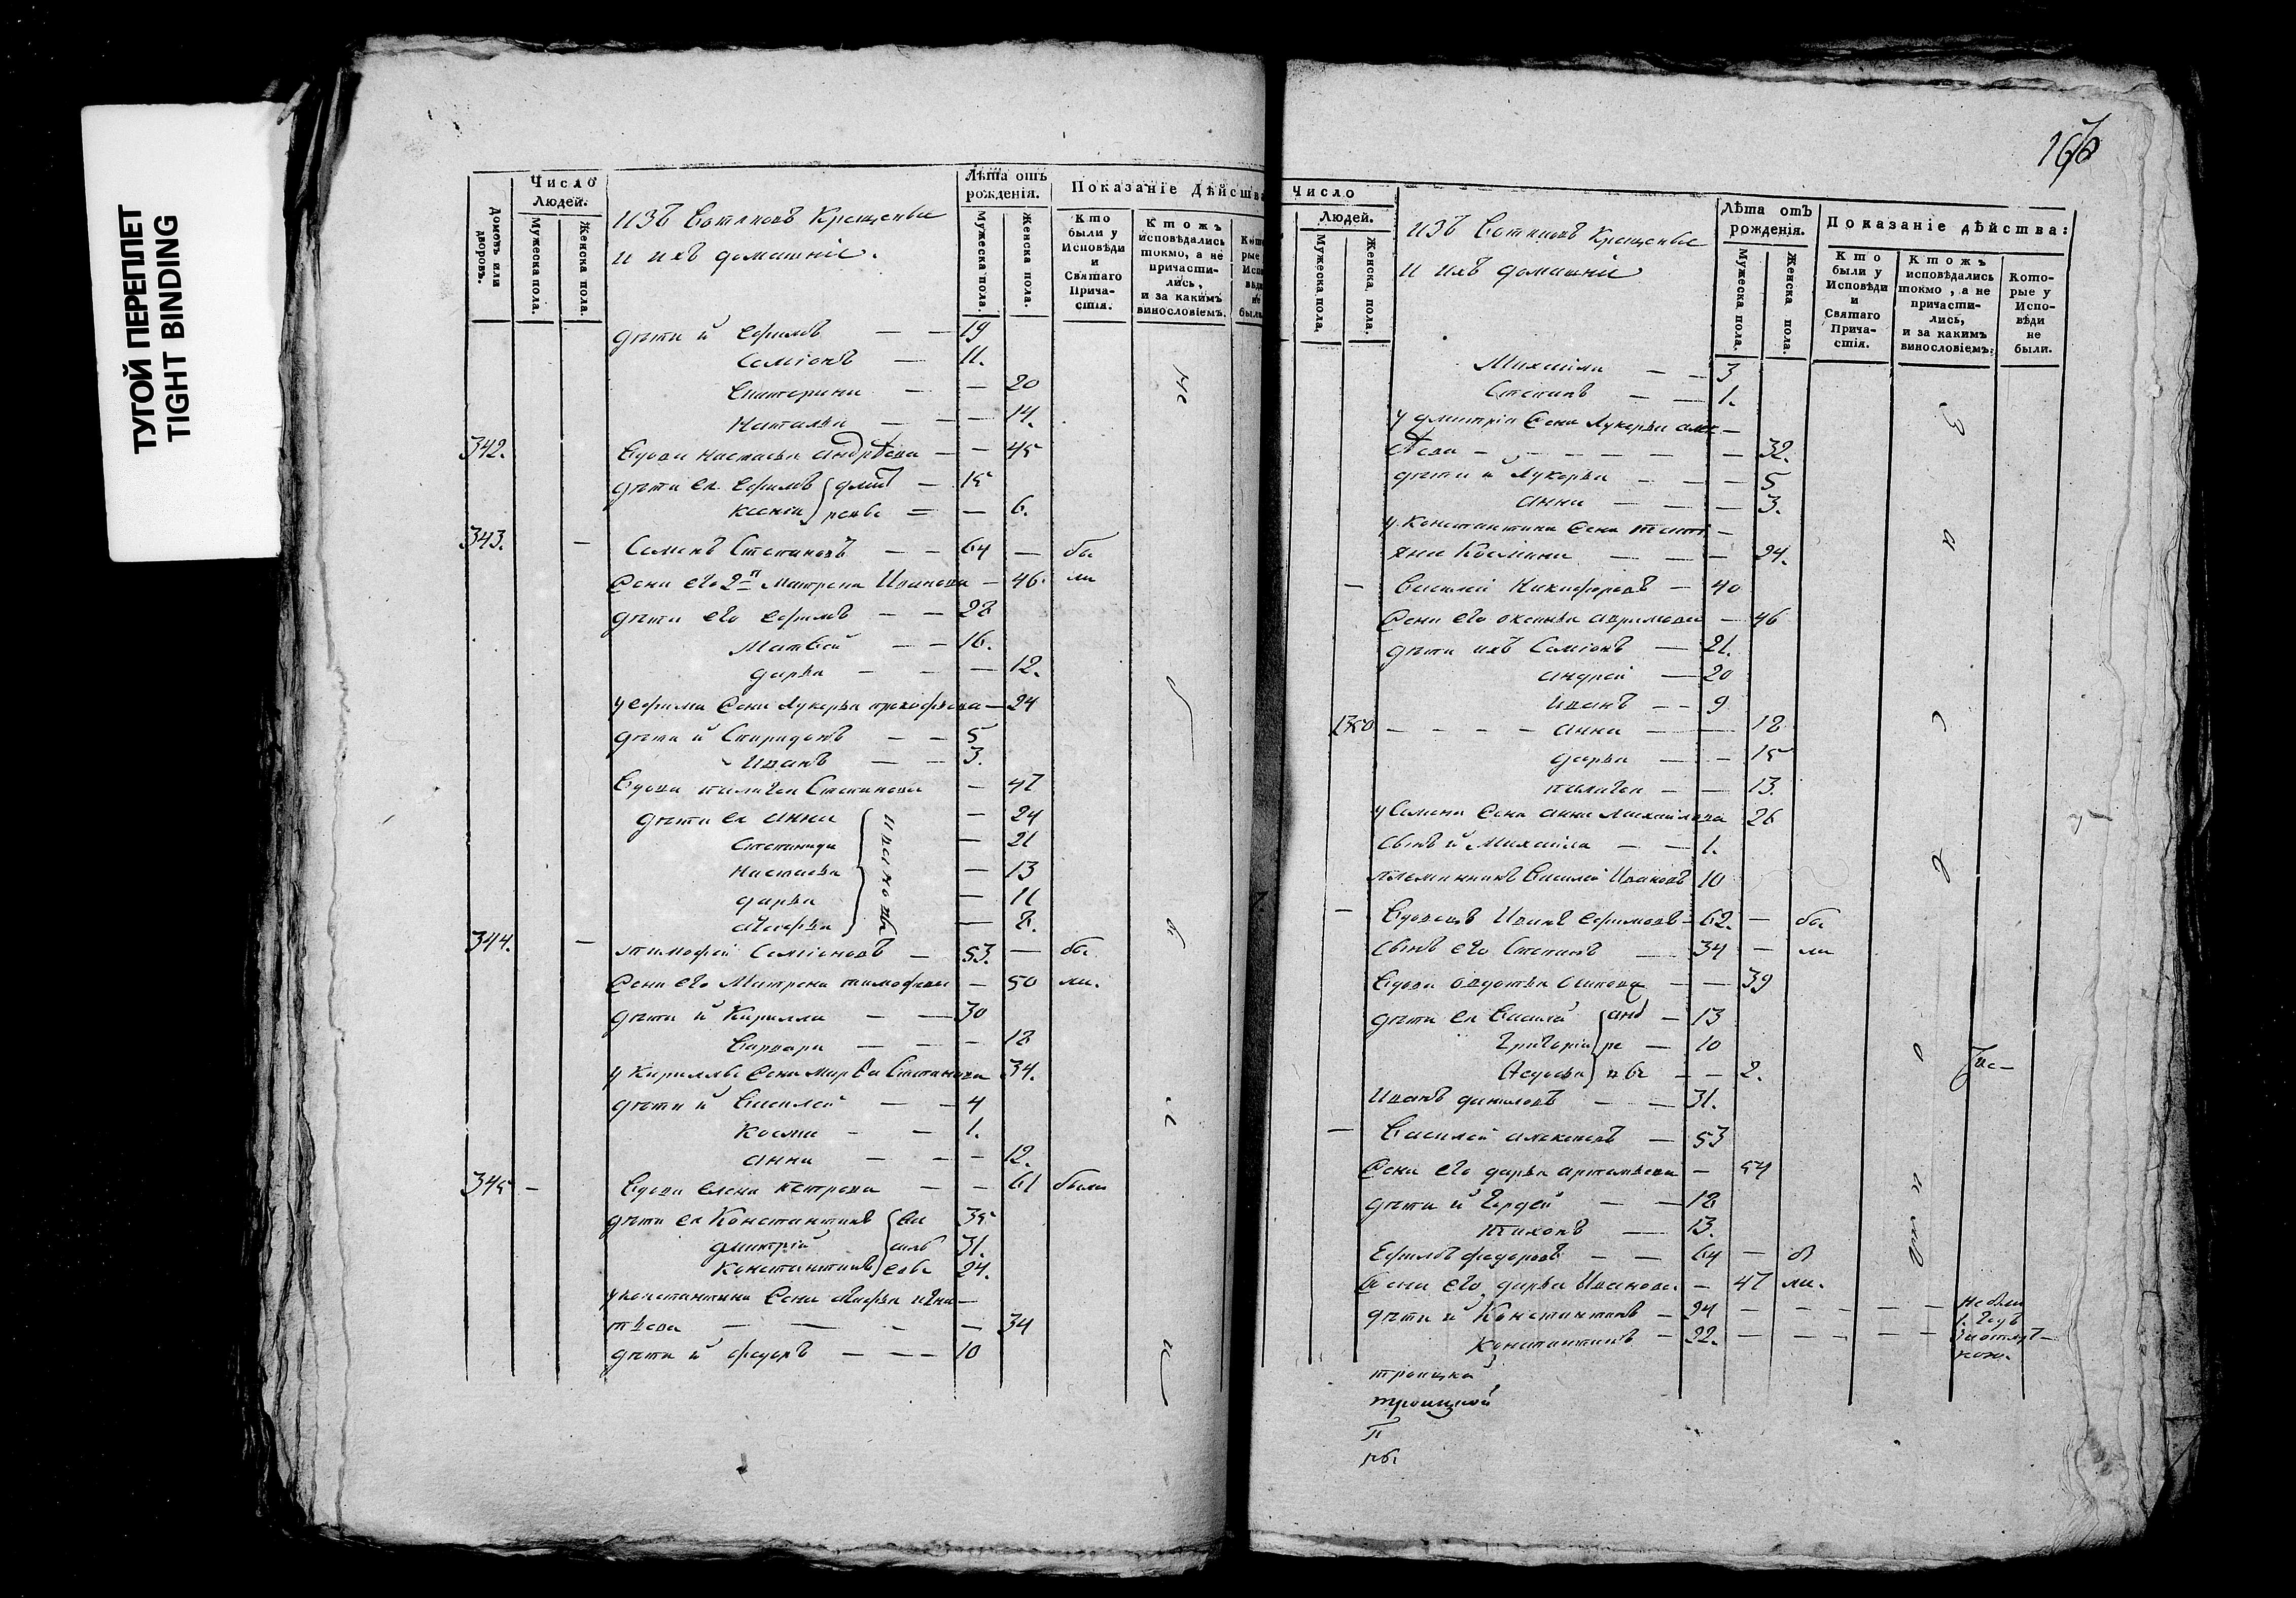 ТУГОЙ ПЕРЕПЛЕТ
TIGHT BINDING
Домовъ или дворовъ.
Число Людей.
Мужеска пола.
Женска пола.
Изъ Вотяковъ Крещеныя
и ихъ домашніе.
Лѣта отъ рожденія.
Мужеска пола.
Женска пола.
Показаніе Дѣйства
Кто были у Исповѣди и Святаго Прича-стія.
Ктожъ исповѣдались токмо, а не причасти-лись, и за какимъ винословіемъ.
дѣти й Ефимъ — — 19
Семіонъ — 11.
Екатерина — — 20
Наталья — — 14.
342. Вдова Настасья Андрѣева — — 45
дѣти ея Ефимъ — 15
Ксенія — — 6.
343. — Семенъ Степановъ — — 64 — бы
Жена его 2я Матрена Иванова — 46. ли
дѣти его Ефимъ — — 28
Матвей — — 16.
дарья — — — 12.
у Ефима Жена Лукерья прокофьева — 24
дѣти й Спиридонъ — — 5
Иванъ — — 3.
Вдова пелагея Степанова — 47
дѣти ея анна — 24
Степанида — 21
Настасья — 13
дарья — 11
Марфа — 8.
Ивановы
344. — тимофей Семіоновъ — 53. — бы
Жена его Матрена тимофеева — 50 ли.
дѣти й Кирилла — — 30
Варвара — — — 18
у Кириллы Жена марѳа Степанова 34.
дѣти й Василей — — 4
Косма — — 1.
анна — — — 12.
345 — Вдова елена петрова — — 61 были
дѣти ея Константинъ 35
дмитрій 31.
Константинъ 24.
Василь евы
у константина Жена Марфа игна—
тьева — — — — 34
дѣти й федоръ — — — 10
166
Число Людей.
Мужеска пола.
Женска пола.
Изъ Вотяковъ Крещеные
и ихъ домашніе
Лѣта отъ рожденія.
Мужеска пола.
Женска пола.
Показаніе дѣйства:
Кто были у Исповѣди и Святаго Прича-стія.
Ктожъ исповѣдались токмо, а не причасти-лись, и за какимъ винословіемъ:
Кото-рые у Испо-вѣди не были.
Михаила — — 3
Степанъ — — 1.
у дмитрія Жена Лукерья алек—
ѣева — — — — — — 32.
дѣти й Лукерья — — — 5
анна — — — 3.
у Константина Жена тати—
яна Космина — — — 24.
— Василей Никифоровъ — 40
Жена его оксинья аврамова — 46
дѣти ихъ Семіонъ — 21.
андрей — 20
Иванъ — — 9
1350 — — — — анна — — 18
дарья — — 15
пелагея — — 13.
у Семена Жена анна михайлова 26
Сынъ й Михаила — — 1.
племянникъ Василей Ивановъ 10
— Вдовецъ Иванъ Ефимовъ — 62. — бы
Сынъ его Степанъ — 34 — ли
Вдова авдотья осипова — — 39
дѣти ея Василей — 13
Григорій — 10
Авдотья — — 2.
Иванъ даниловъ — — 31.
— Василей алексеевъ — 53
Жена его дарья артемьева — 54
дѣти й Гордей — — 18
тихонъ — 13.
Ефимъ федоровъ — — 64 — бы
Жена его дарья Иванова — 47 ли.
дѣти й Константинъ — 24 — — — — — не были
Константинъ — 22. — — — — — 1. годъ
за отлуч—
кою.
троицка
троицкой
П